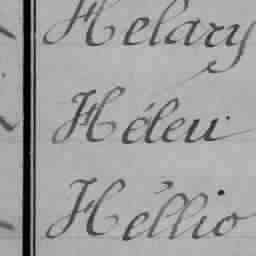 Hélary
Héleu
Héllio